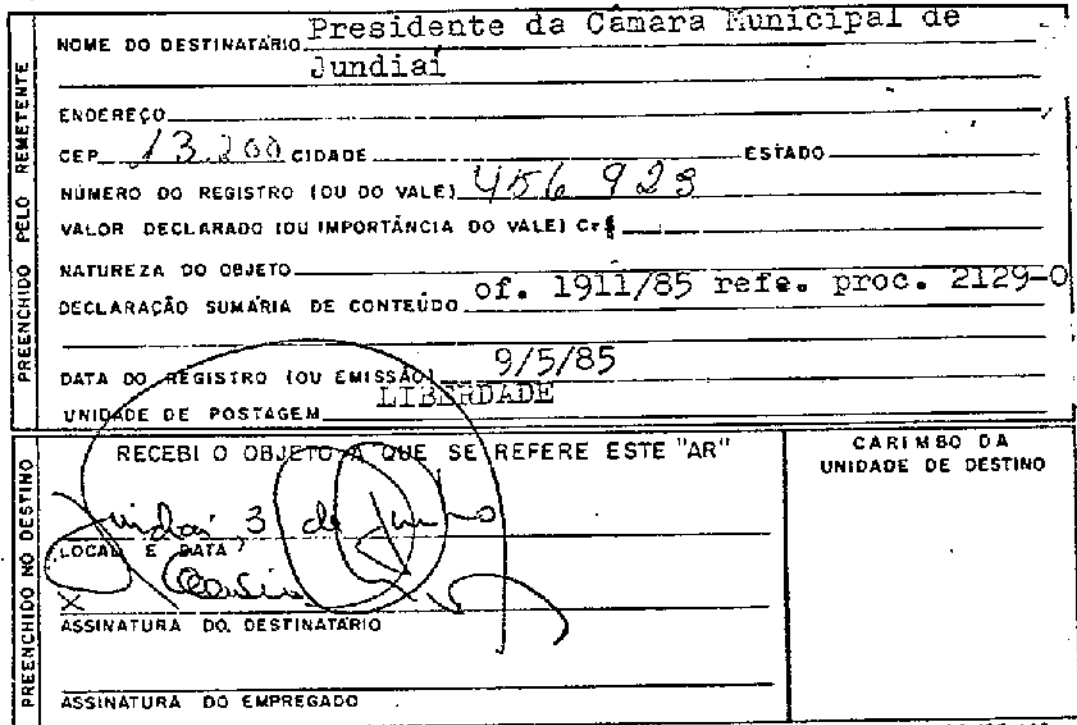 NOME DO DESTINATÁRIO Presidente da Câmara Municipal de
Jundiaí
ENDEREÇO
CEP 13.200 CIDADE ESTADO
NÚMERO DO REGISTRO (OU DO VALE) 456 923
VALOR DECLARADO (OU IMPORTÂNCIA DO VALE) Cr$
NATUREZA DO OBJETO
DECLARAÇÃO SUMÁRIA DE CONTEÚDO of. 1911/85 refe. proc. 2129-0
DATA DO REGISTRO (OU EMISSÃO) 9/5/85
UNIDADE DE POSTAGEM LIBERDADE
PREENCHIDO PELO REMETENTE
RECEBI O OBJETO A QUE SE REFERE ESTE "AR"
3 de junho
LOCAL E DATA
X
ASSINATURA DO DESTINATÁRIO
ASSINATURA DO EMPREGADO
CARIMBO DA
UNIDADE DE DESTINO
PREENCHIDO NO DESTINO